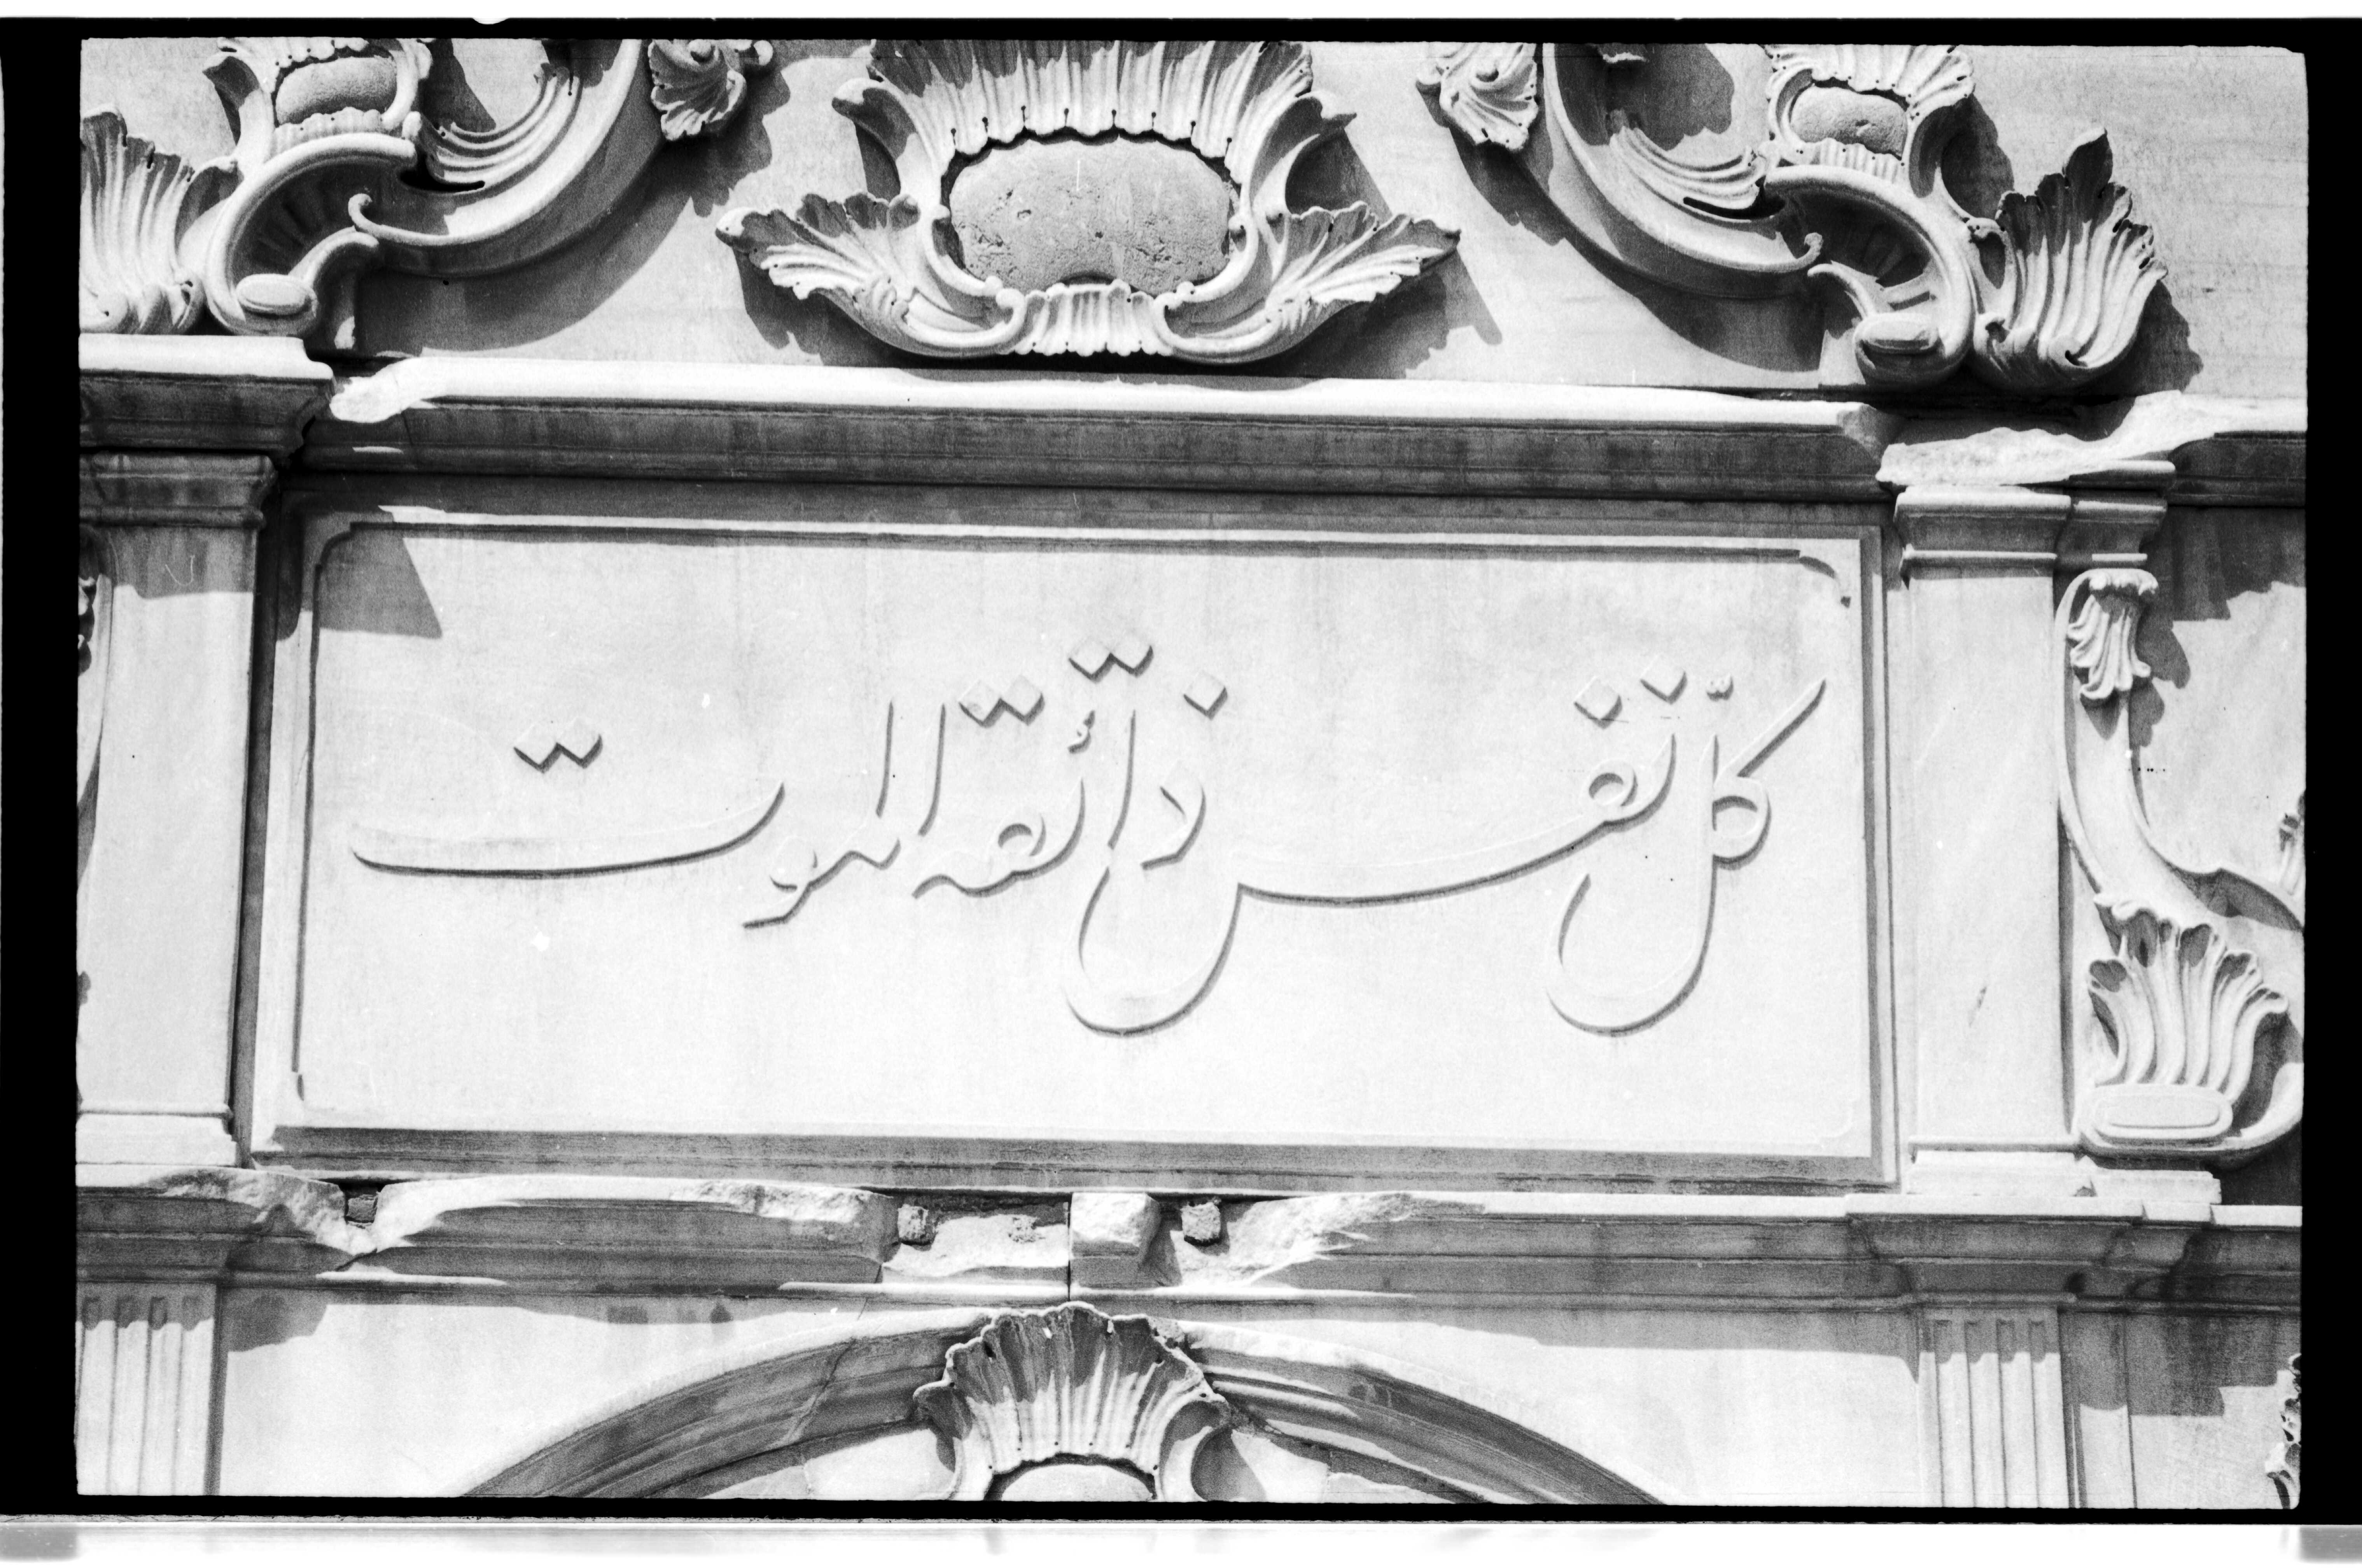 كلّ نفس ذائقة الموت